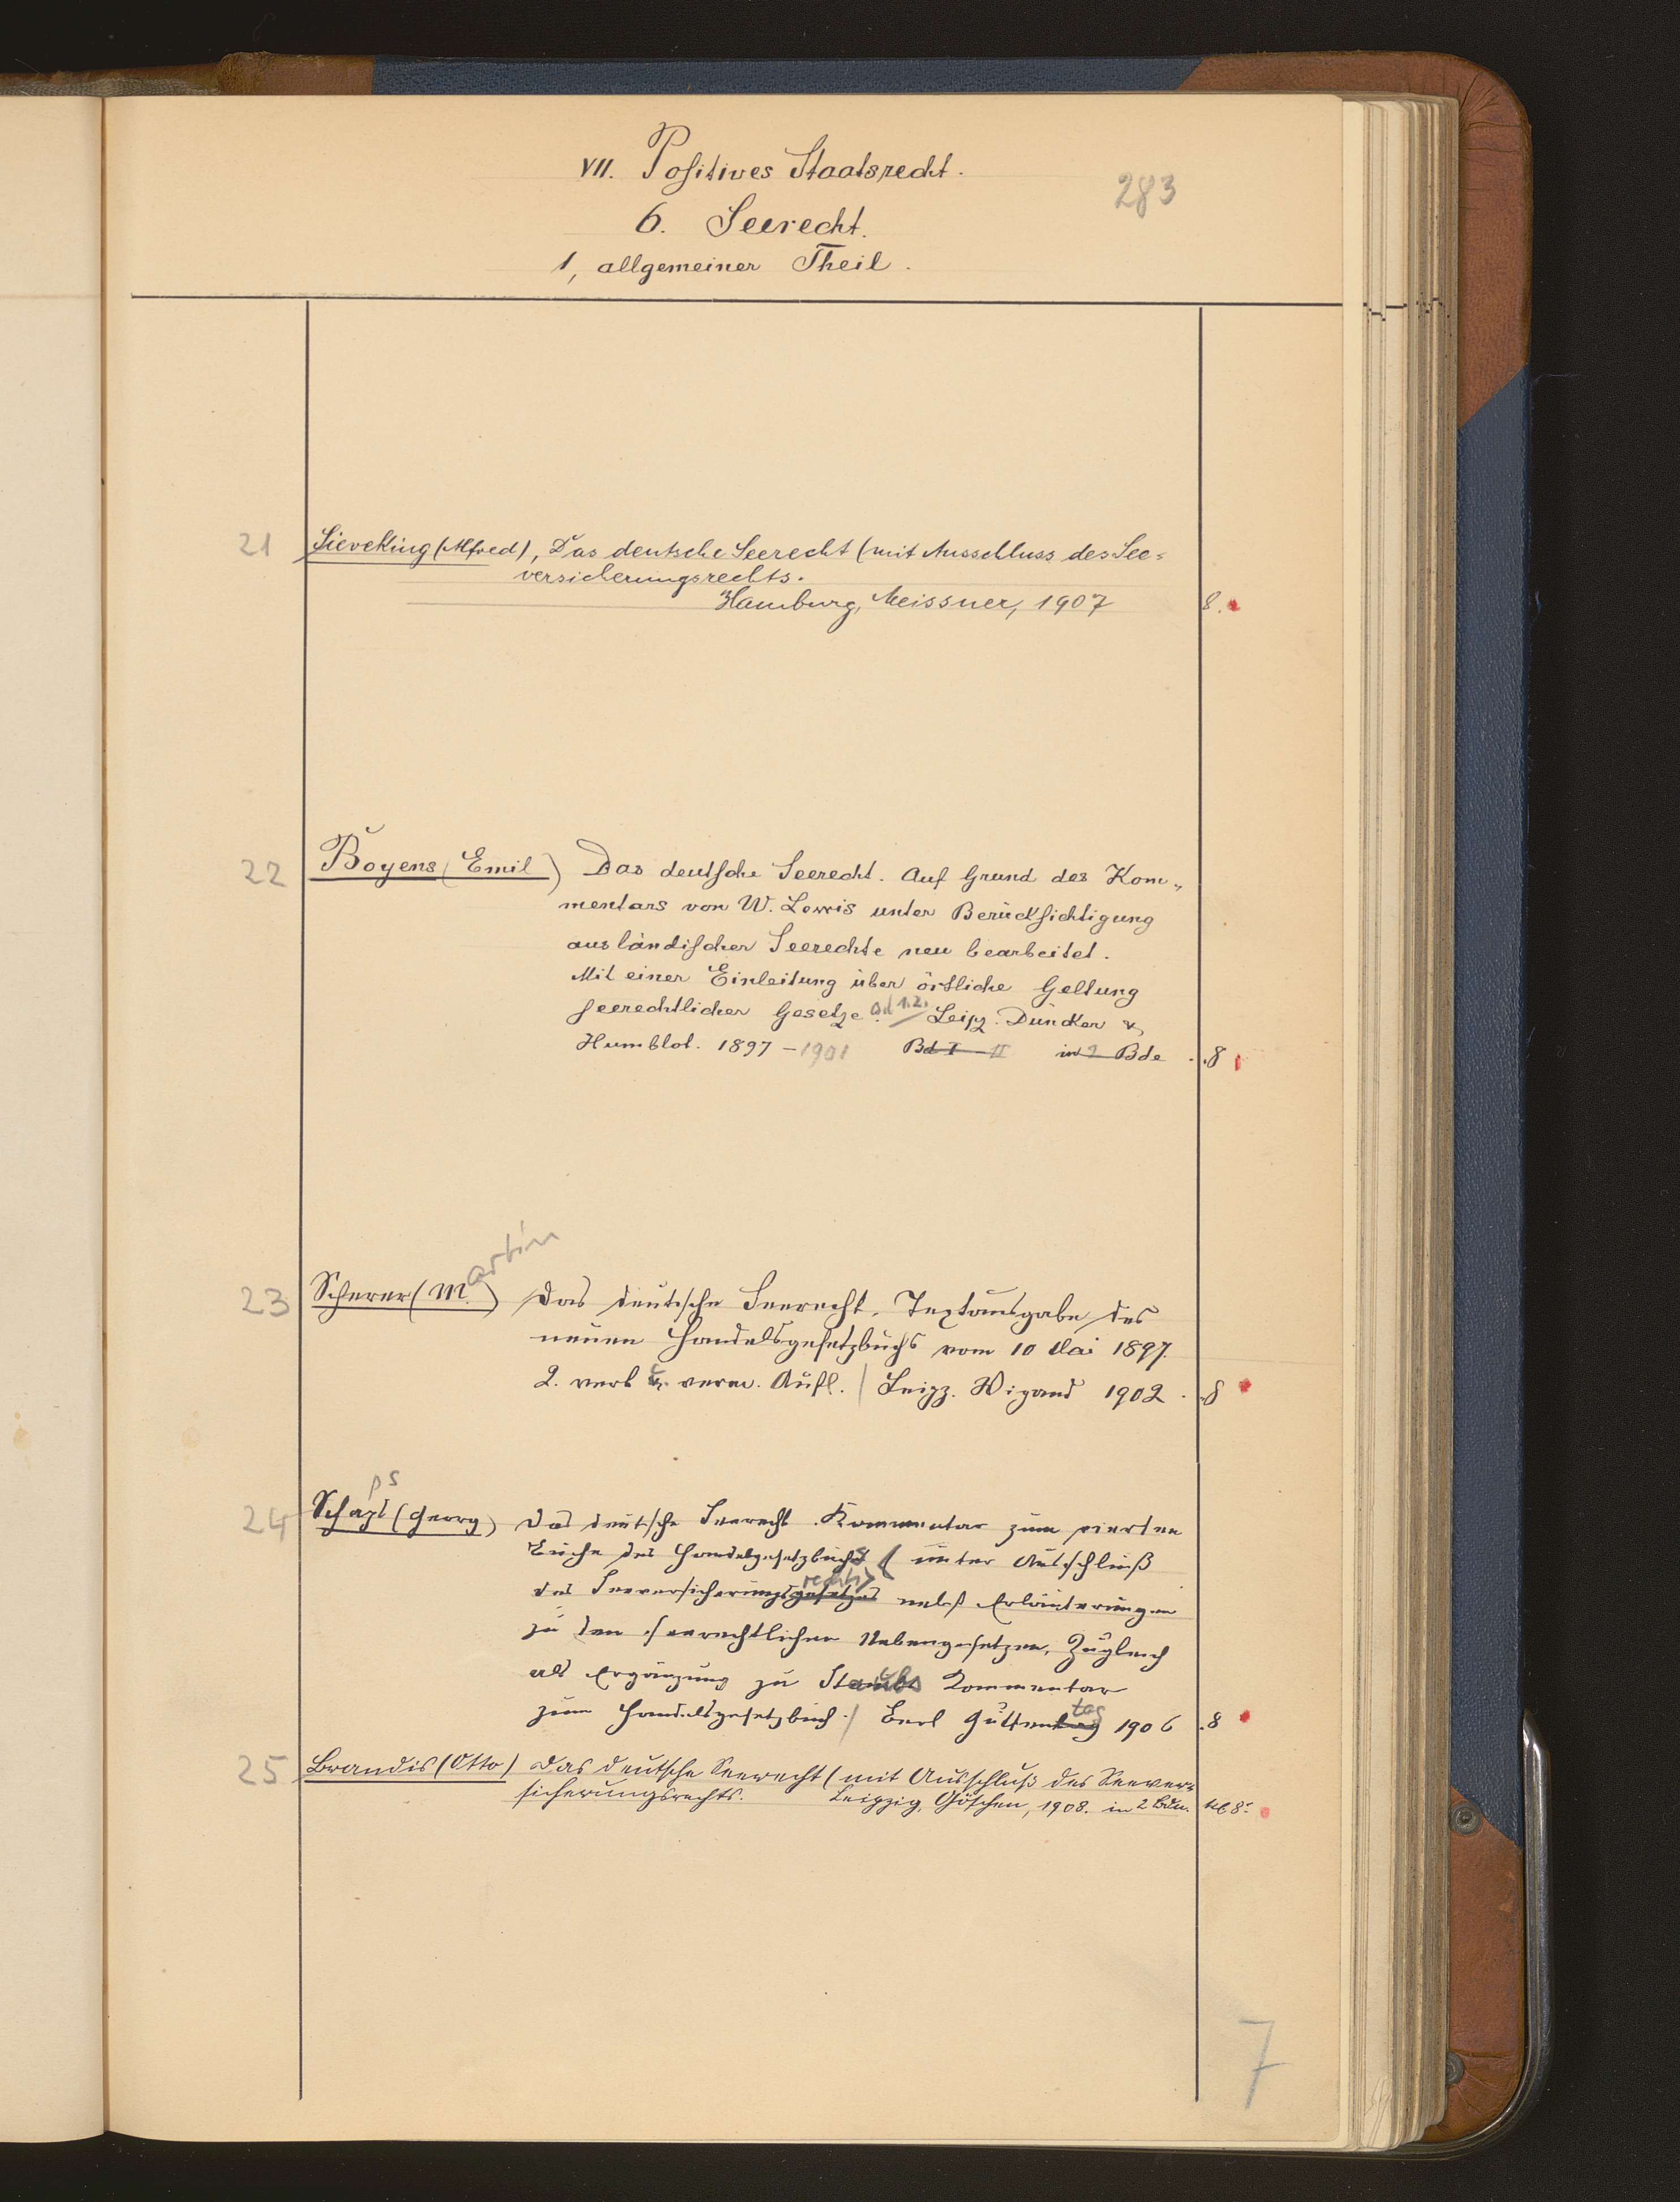 VII. Positives Staatsrecht.
283
6. Seerecht.
1, allgemeiner Theil.
21 Sieveking (Alfred), Das deutsche Seerecht (mit Ausschluss des See=
versicherungsrechts.
Hamburg, Meissner, 1907 8.
22 Boyens (Emil) Das deutsche Seerecht. Auf Grund des Kom„
mentars von W. Lewis unter Berücksichtigung
ausländischer Seerechte neu bearbeitet.
Mit einer Einleitung über örtliche Geltung
seerechtlicher Gesetze. Bd 1.2. Leipz. Duncker &
Humblot. 1897 - 1901 Bd I - II in 2 Bde . 8
artin
23 Scherer (M.) Das deutsche Seerecht. Textausgabe des
neuen Handelsgesetzbuchs vom 10 Mai 1897.
2. verb &. verm. Aufl. / Leipz. Wigand 1902 . 8
ps
24 Schaps (Georg) Das deutsche Seerecht. Kommentar zum vierten
Buche des Handelsgesetzbuchs (unter Ausschluß
rechts)
des Seeversicherungsgesetzes nebst Erläuterungen
zu den seerechtlichen Nebengesetzen. Zugleich
als Ergänzung zu Staubs Kommentar
zum Handelsgesetzbuch. / Berl Guttentag tag 1906 . 8
25 Brandis (Otto) Das deutsche Seerecht (mit Ausschluß des Seever=
sicherungsrechts. Leipzig, Göschen, 1908. in 2 Bdn. kl 8.
7